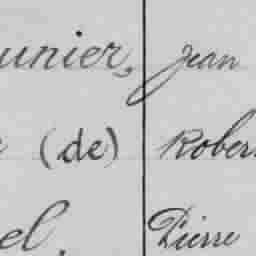 unier, Jean
(de) Rober
el. Pierre